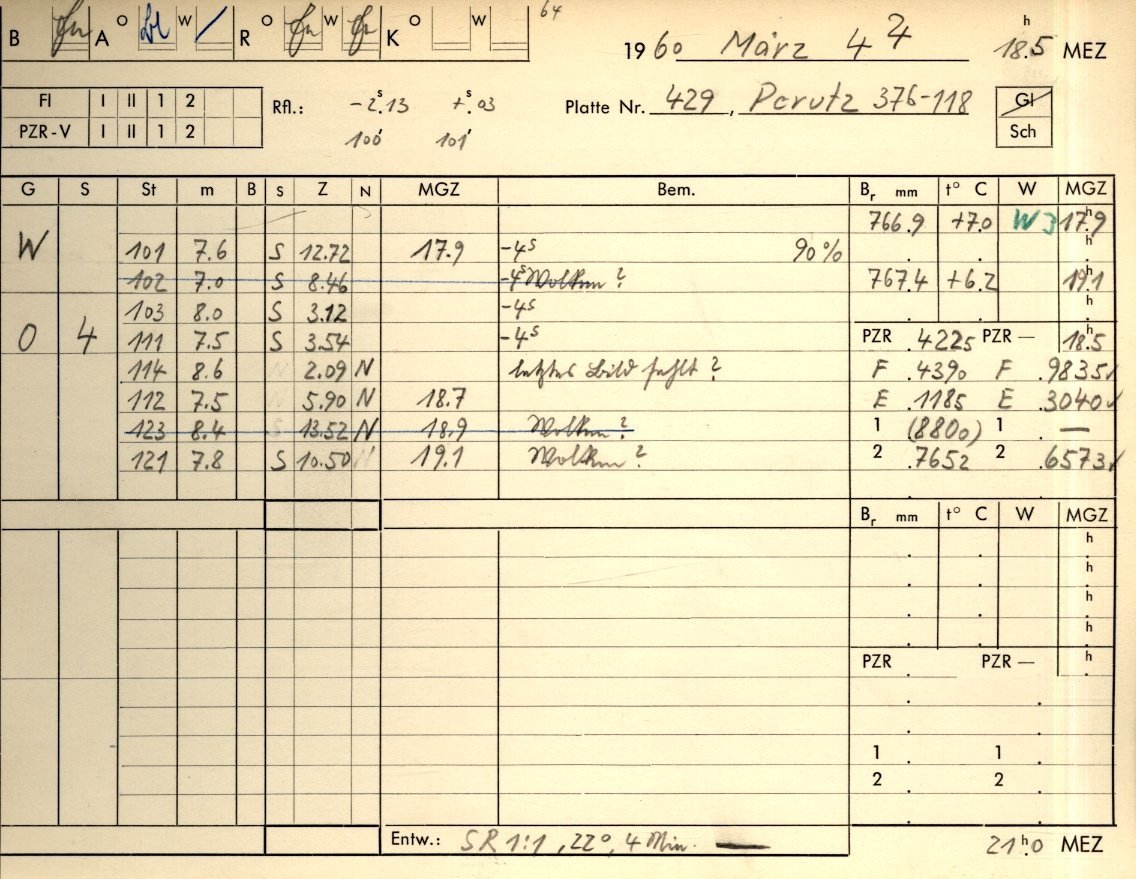 B A O W R O W K O W 64
1960 März 4 4 18.5 h MEZ
Fl I II 1 2
PZR-V I II 1 2
Rfl.: -2.s13 +.s03
100' 101'
Platte Nr. 429, Perutz 376-118
Gl
Sch
G S St m B S Z N MGZ Bem. Br mm t° C W MGZ
766.9 +7.0 W3 17.h9
W 101 7.6 S 12.72 17.9 -4s 90% h
102 7.0 S 8.46 -4s Wolken? 767.4 +6.2 19.h1
103 8.0 S 3.12 -4s h
O 4 111 7.5 S 3.54 -4s PZR .4225 PZR — 18.h5
114 8.6 2.09 N letztes Bild fehlt? F .4390 F .9835✓
112 7.5 5.90 N 18.7 E .1185 E .3040✓
123 8.4 13.52 N 18.9 Wolken? 1 (8800) 1 . —
121 7.8 S 10.50 N 19.1 Wolken? 2 .7652 2 .6573✓
Br mm t° C W MGZ
h
h
h
h
PZR PZR — h
1 1
2 2
Entw.: SR 1:1, 22°, 4 Min. — 21.h0 MEZ